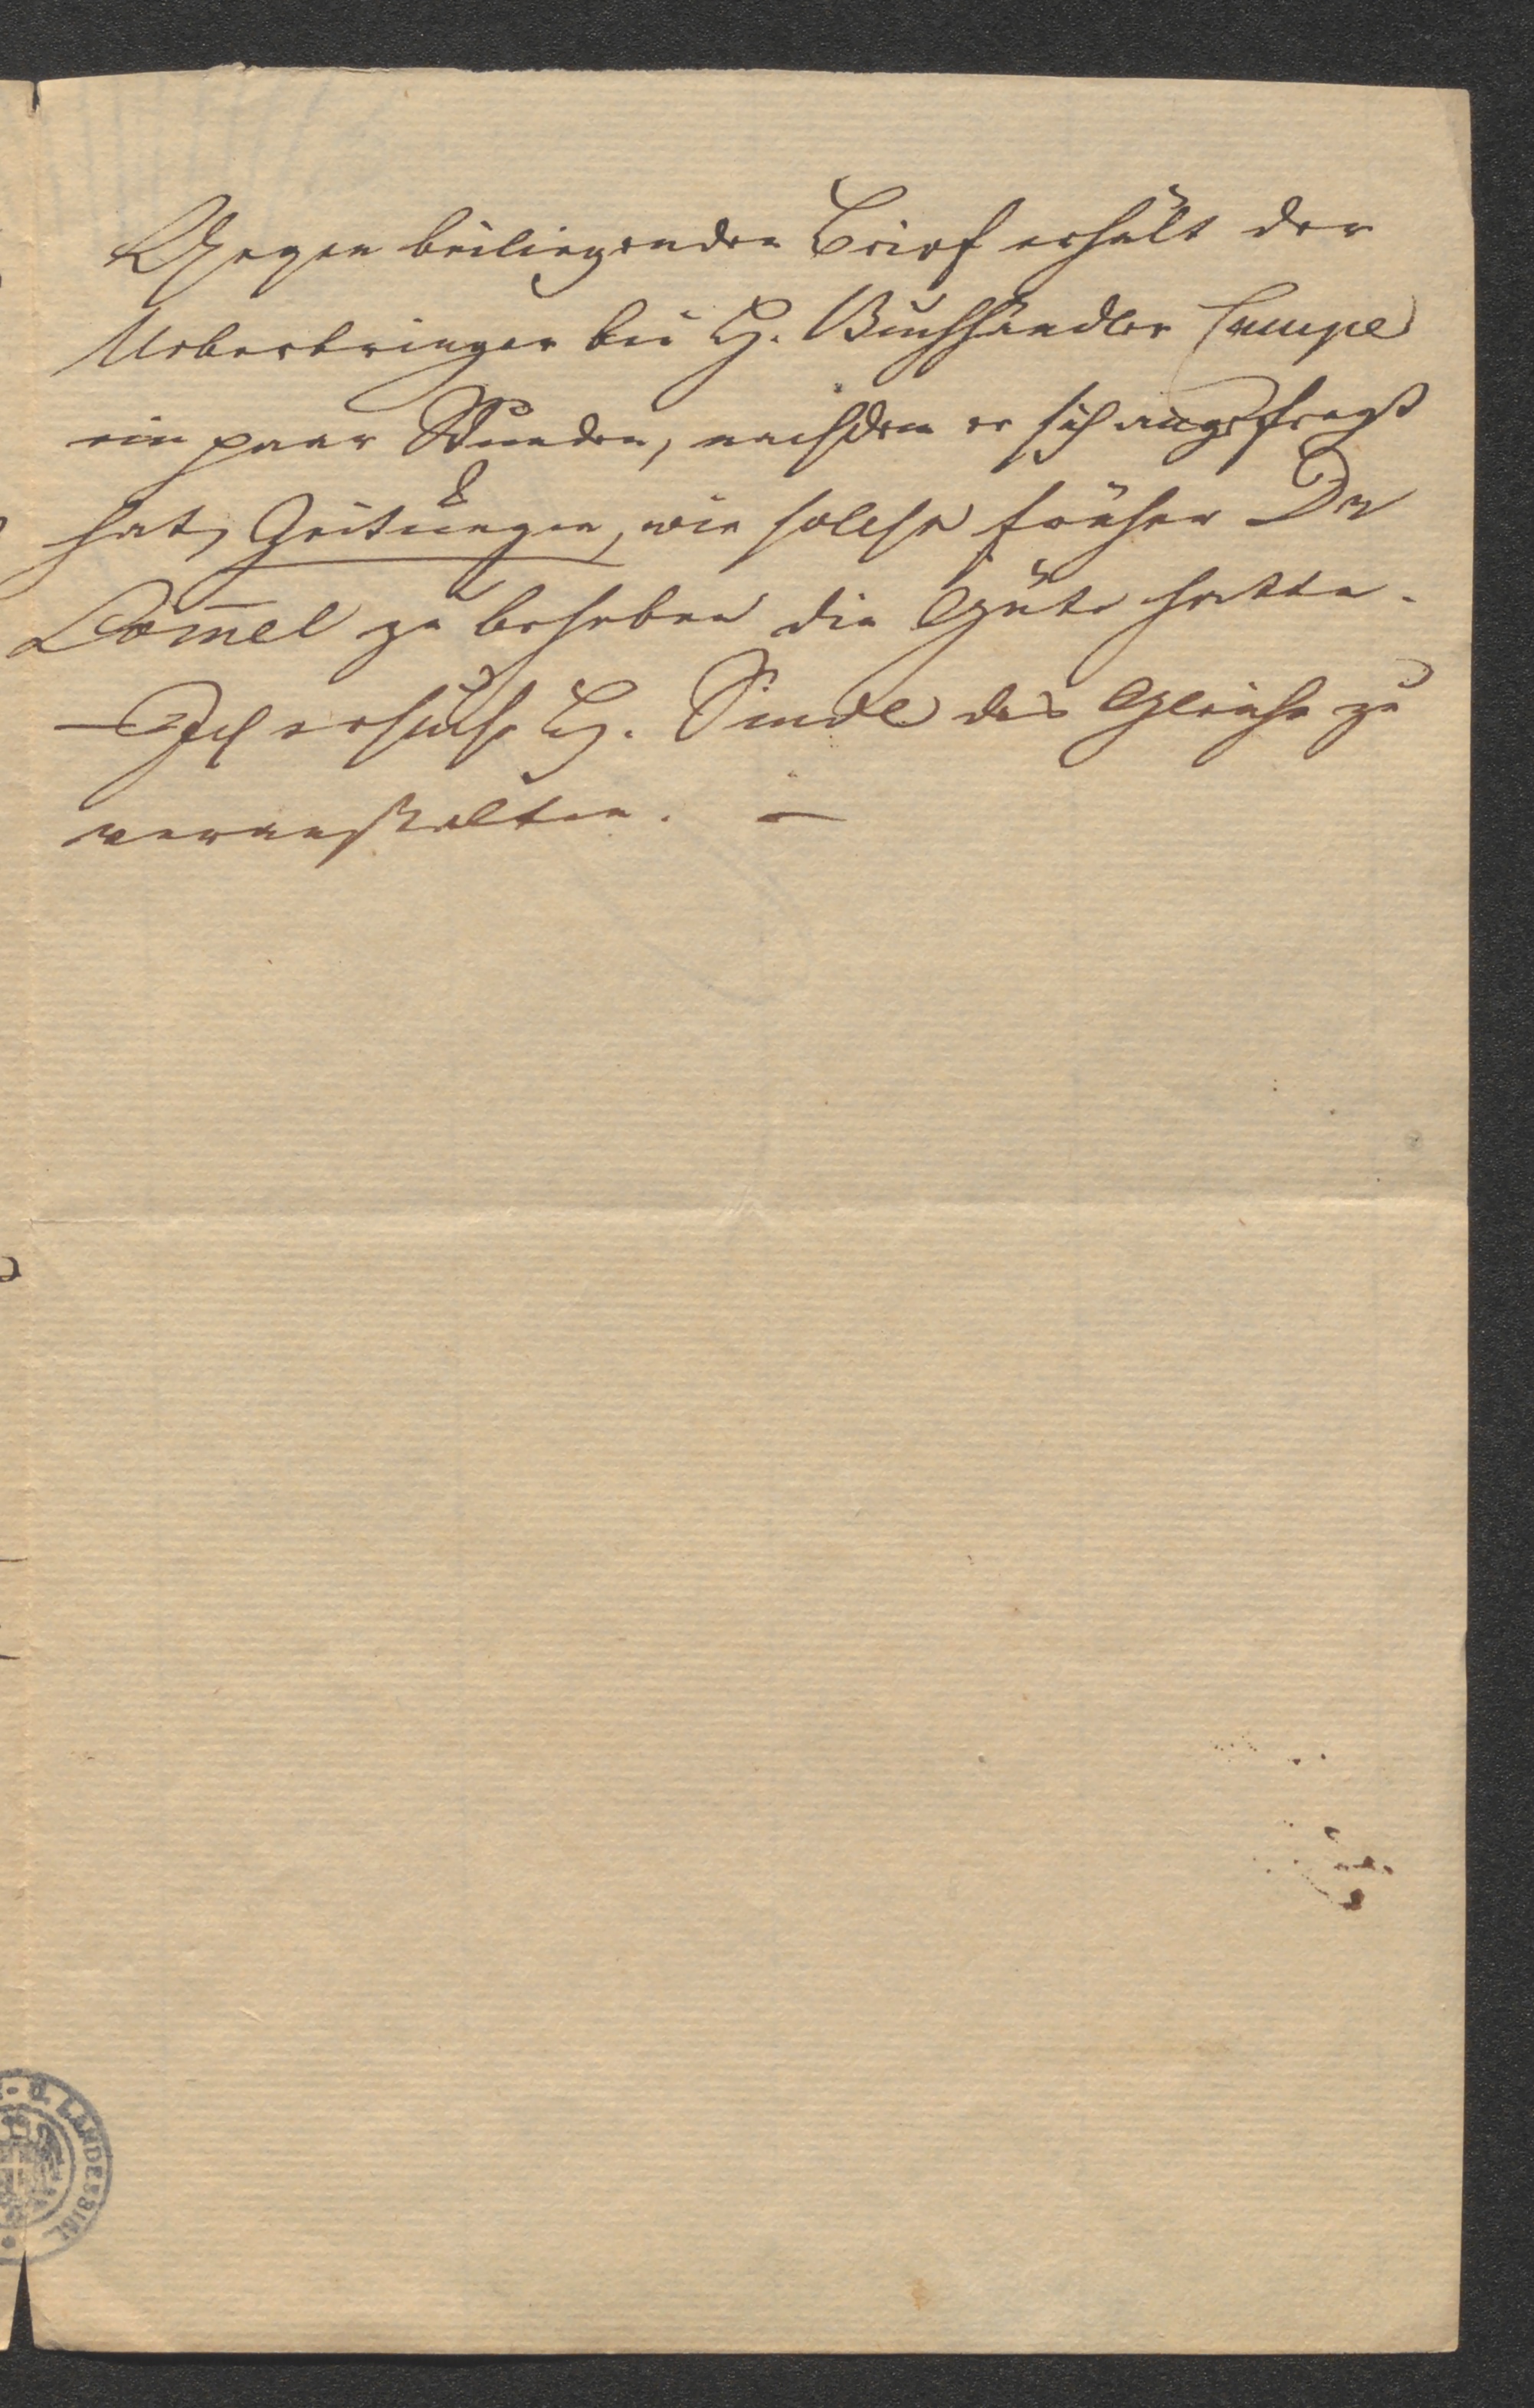 Gegen beiliegenden Brief erhält der
Ueberbringer bei H. Buchhändler Campe
ein paar Stunden, nachdem er sich angefragt
hat, Zeitungen, wie solche früher Dr
Lom̄el zu beheben die Güte hatte.
– Ich ersuche H. Sindl das Gleiche zu
veranstalten. –
LANDESBIBL